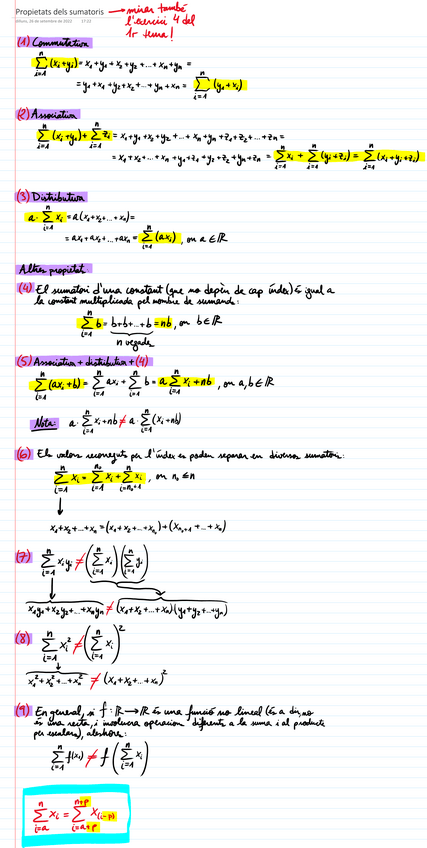 Propietats dels sumatoris → mirar també
l'exercici 4 del
1r tema!
17:23
(1) Commutativa
∑_{i=1}^{n} (x_i+y_i) = x_1+y_1+x_2+y_2+...+x_n+y_n =
= y_1+x_1+y_2+x_2+...+y_n+x_n = ∑_{i=1}^{n} (y_i+x_i)
(2) Associativa
∑_{i=1}^{n} (x_i+y_i) + ∑_{i=1}^{n} z_i = x_1+y_1+x_2+y_2+...+x_n+y_n+z_1+z_2+...+z_n =
= x_1+x_2+...+x_n+y_1+z_1+y_2+z_2+y_n+z_n = ∑_{i=1}^{n} x_i + ∑_{i=1}^{n} (y_i+z_i) = ∑_{i=1}^{n} (x_i+y_i+z_i)
(3) Distributiva
a·∑_{i=1}^{n} x_i = a(x_1+x_2+...+x_n) =
= ax_1+ax_2+...+ax_n = ∑_{i=1}^{n} (ax_i), on a∈ℝ
Altres propietats
(4) El sumatori d'una constant (que no depèn de cap índex) és igual a
la constant multiplicada pel nombre de sumands:
∑_{i=1}^{n} b = b+b+...+b = nb, on b∈ℝ
n vegades
(5) Associativa + distributiva + (4)
∑_{i=1}^{n} (ax_i+b) = ∑_{i=1}^{n} ax_i + ∑_{i=1}^{n} b = a∑_{i=1}^{n} x_i + nb, on a,b∈ℝ
Nota: a·∑_{i=1}^{n} x_i+nb ≠ a·∑_{i=1}^{n} (x_i+nb)
(6) Els valors recorreguts per l'índex es poden separar en diversos sumatoris:
∑_{i=1}^{n} x_i = ∑_{i=1}^{n_0} x_i + ∑_{i=n_0+1}^{n} x_i, on n_0 ≤ n
↓
x_1+x_2+...+x_n = (x_1+x_2+...+x_{n_0}) + (x_{n_0+1}+...+x_n)
(7) ∑_{i=1}^{n} x_i y_i ≠ (∑_{i=1}^{n} x_i)(∑_{i=1}^{n} y_i)
x_1y_1+x_2y_2+...+x_ny_n ≠ (x_1+x_2+...+x_n)(y_1+y_2+...+y_n)
(8) ∑_{i=1}^{n} x_i² ≠ (∑_{i=1}^{n} x_i)²
x_1²+x_2²+...+x_n² ≠ (x_1+x_2+...+x_n)²
(9) En general, si f: ℝ→ℝ és una funció no lineal (és a dir, no
és una recta, i involucra operacions diferents a la suma i al producte
per escalars), aleshores:
∑_{i=1}^{n} f(x_i) ≠ f(∑_{i=1}^{n} x_i)
∑_{i=a}^{n} x_i = ∑_{i=a+p}^{n+p} x_{(i-p)}